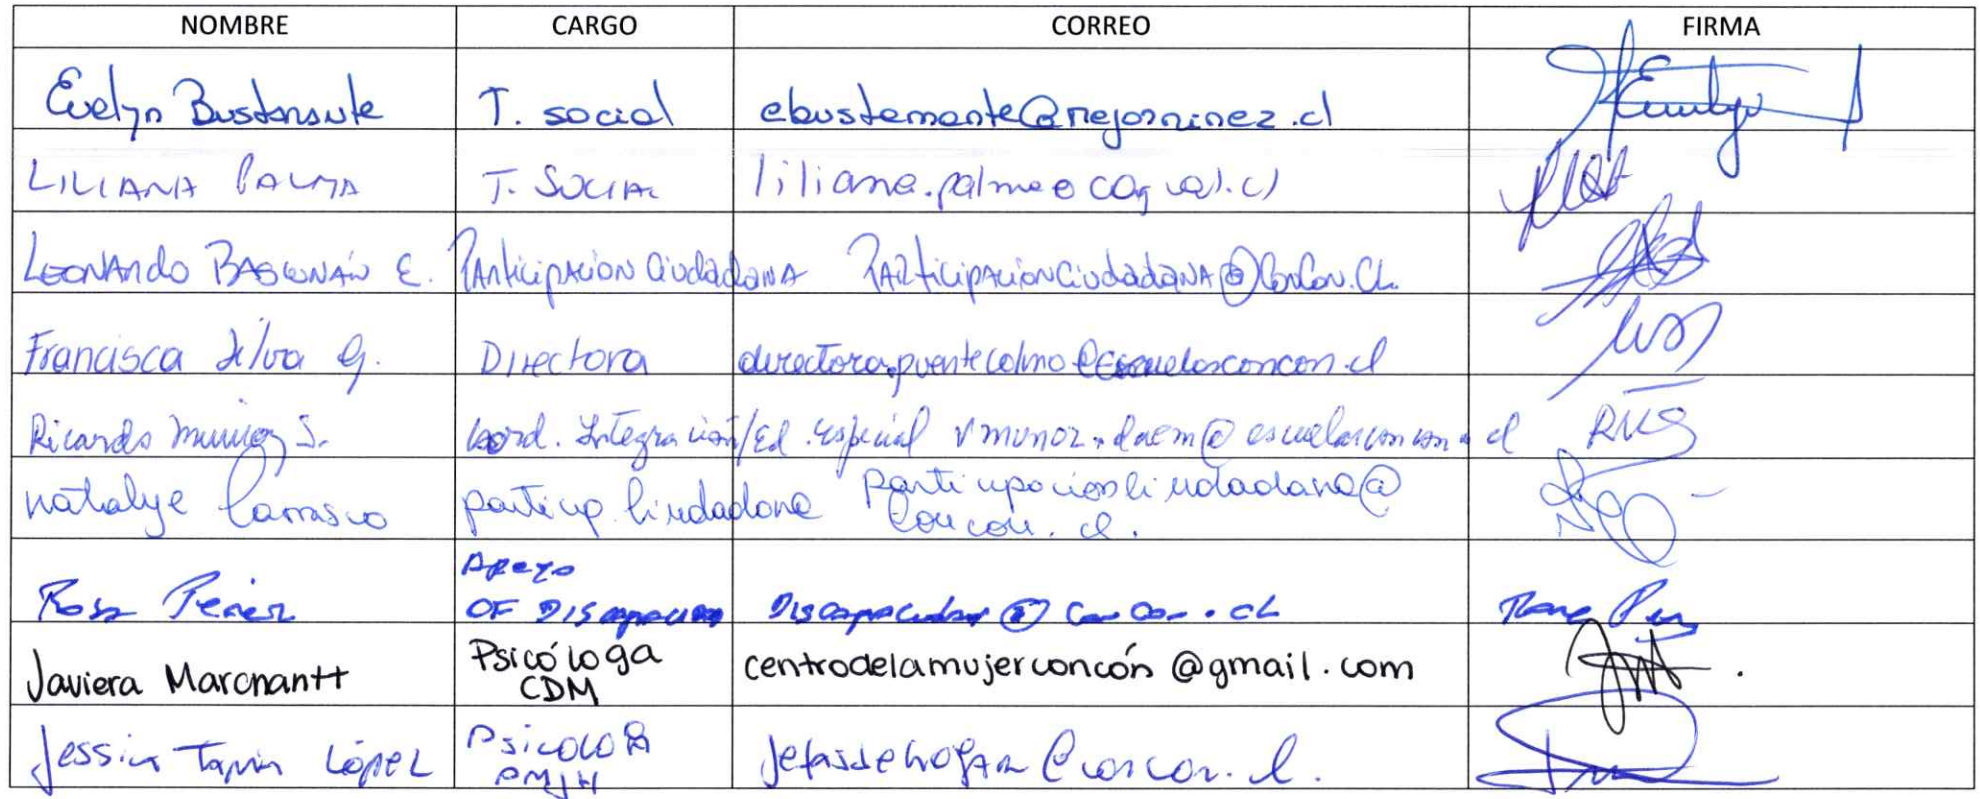 NOMBRE CARGO CORREO FIRMA
Evelyn Bustamante T. social ebustamante@mejorninez.cl
LILIANA PALMA T. SOCIAL liliana.palma@
Leonardo BASCUÑÁN E. PARticipación Ciudadana PARticipaciónCiudadana@ConCon.CL
Francisca Silva G. Directora directora.puentecolmo@escuelasconcon.cl
Ricardo Muñoz S. Coord. Integración/Ed. especial rmunoz.daem@escuelasconcon.cl RMS
natalye Carrasco particip. Ciudadana participacionciudadana@
Concon.cl.
Apoyo
Rosa Pérez OF Discapacidad Discapacidad@ConCon.cl Rosa Pérez
Javiera Marchantt Psicóloga centrodelamujerconcón@gmail.com
CDM
Jessica Tapia López Psicóloga jefasdehogar@concon.cl.
PMJH